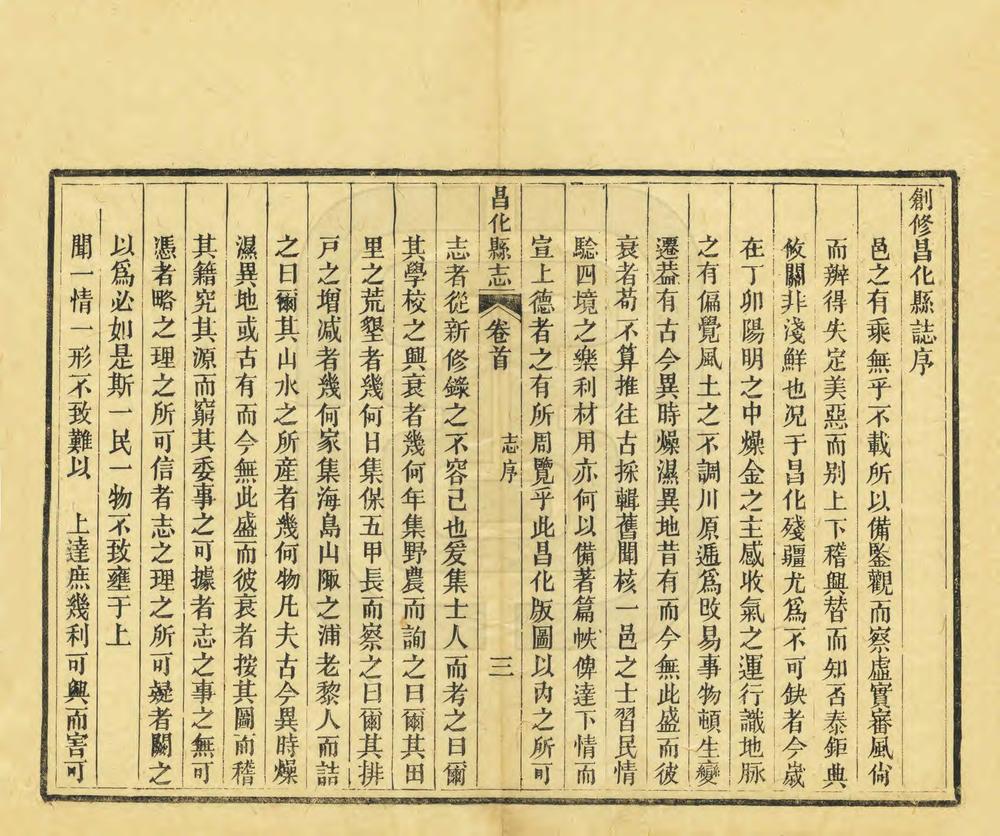 創修昌化縣誌序
邑之有乘無乎不載所以備鑒觀而察虛實審風尙
而辨得失定美惡而别上下稽興替而知否泰鉅典
攸關非淺鮮也况于昌化殘疆尤爲不可缺者今歲
在丁卯陽明之中燥金之主感收氣之運行識地脉
之有偏覺風土之不調川原遞爲改易事物頓生變
遷葢有古今異時燥濕異地昔有而今無此盛而彼
衰者苟不算推往古採輯舊聞核一邑之士習民情
騐四境之樂利材用亦何以備著篇帙俾達下情而
宣上德者之有所周覽乎此昌化版圖以內之所可
昌化縣志 卷首 志序 三
志者從新修錄之不容已也爰集士人而考之曰爾
其學校之興衰者幾何年集野農而詢之曰爾其田
里之荒墾者幾何日集保五甲長而察之曰爾其排
戸之增减者幾何家集海島山陬之浦老黎人而詰
之曰爾其山水之所産者幾何物凡夫古今異時燥
濕異地或古有而今無此盛而彼衰者按其圖而稽
其籍究其源而窮其委事之可據者志之事之無可
憑者略之理之所可信者志之理之所可疑者闕之
以爲必如是斯一民一物不致壅于上
聞一情一形不致難以 上達庶幾利可興而害可